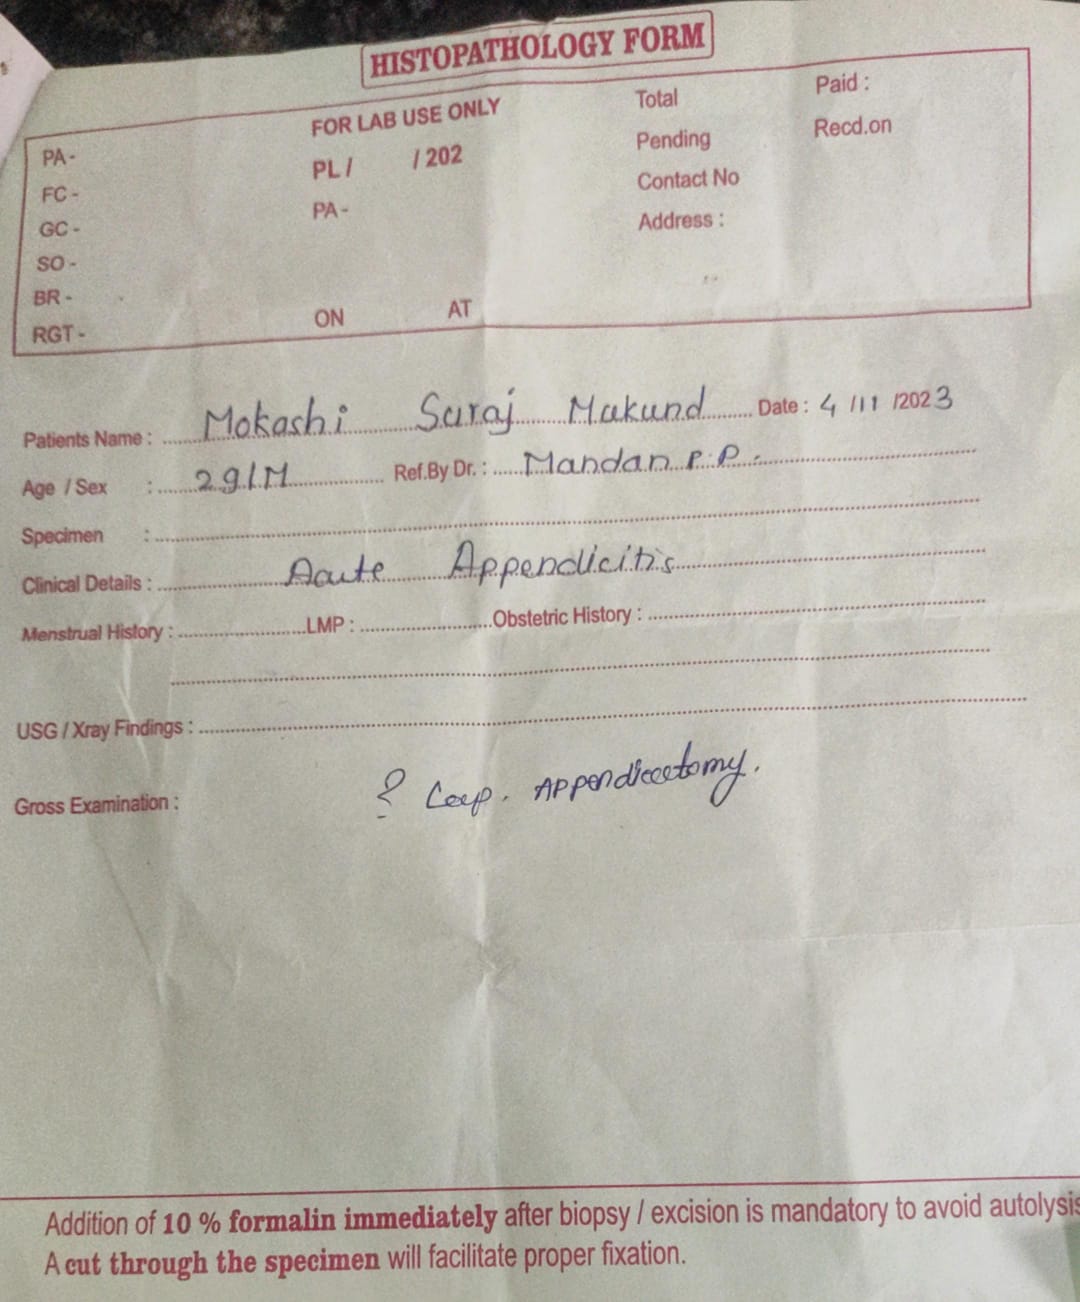 HISTOPATHOLOGY FORM
FOR LAB USE ONLY Total Paid :
PA- PL / / 202 Pending Recd.on
FC - PA - Contact No
GC - Address :
SO -
BR -
RGT - ON AT
Patients Name : Mokashi Suraj Makund Date : 4 /11 /2023
Age / Sex : 29/M Ref.By Dr. : Mandan P.P.
Specimen :
Clinical Details : Acute Appendicitis
Menstrual History : LMP : Obstetric History :
USG / Xray Findings :
Gross Examination : ? Appendicectomy.
Addition of 10 % formalin immediately after biopsy / excision is mandatory to avoid autolysis
A cut through the specimen will facilitate proper fixation.